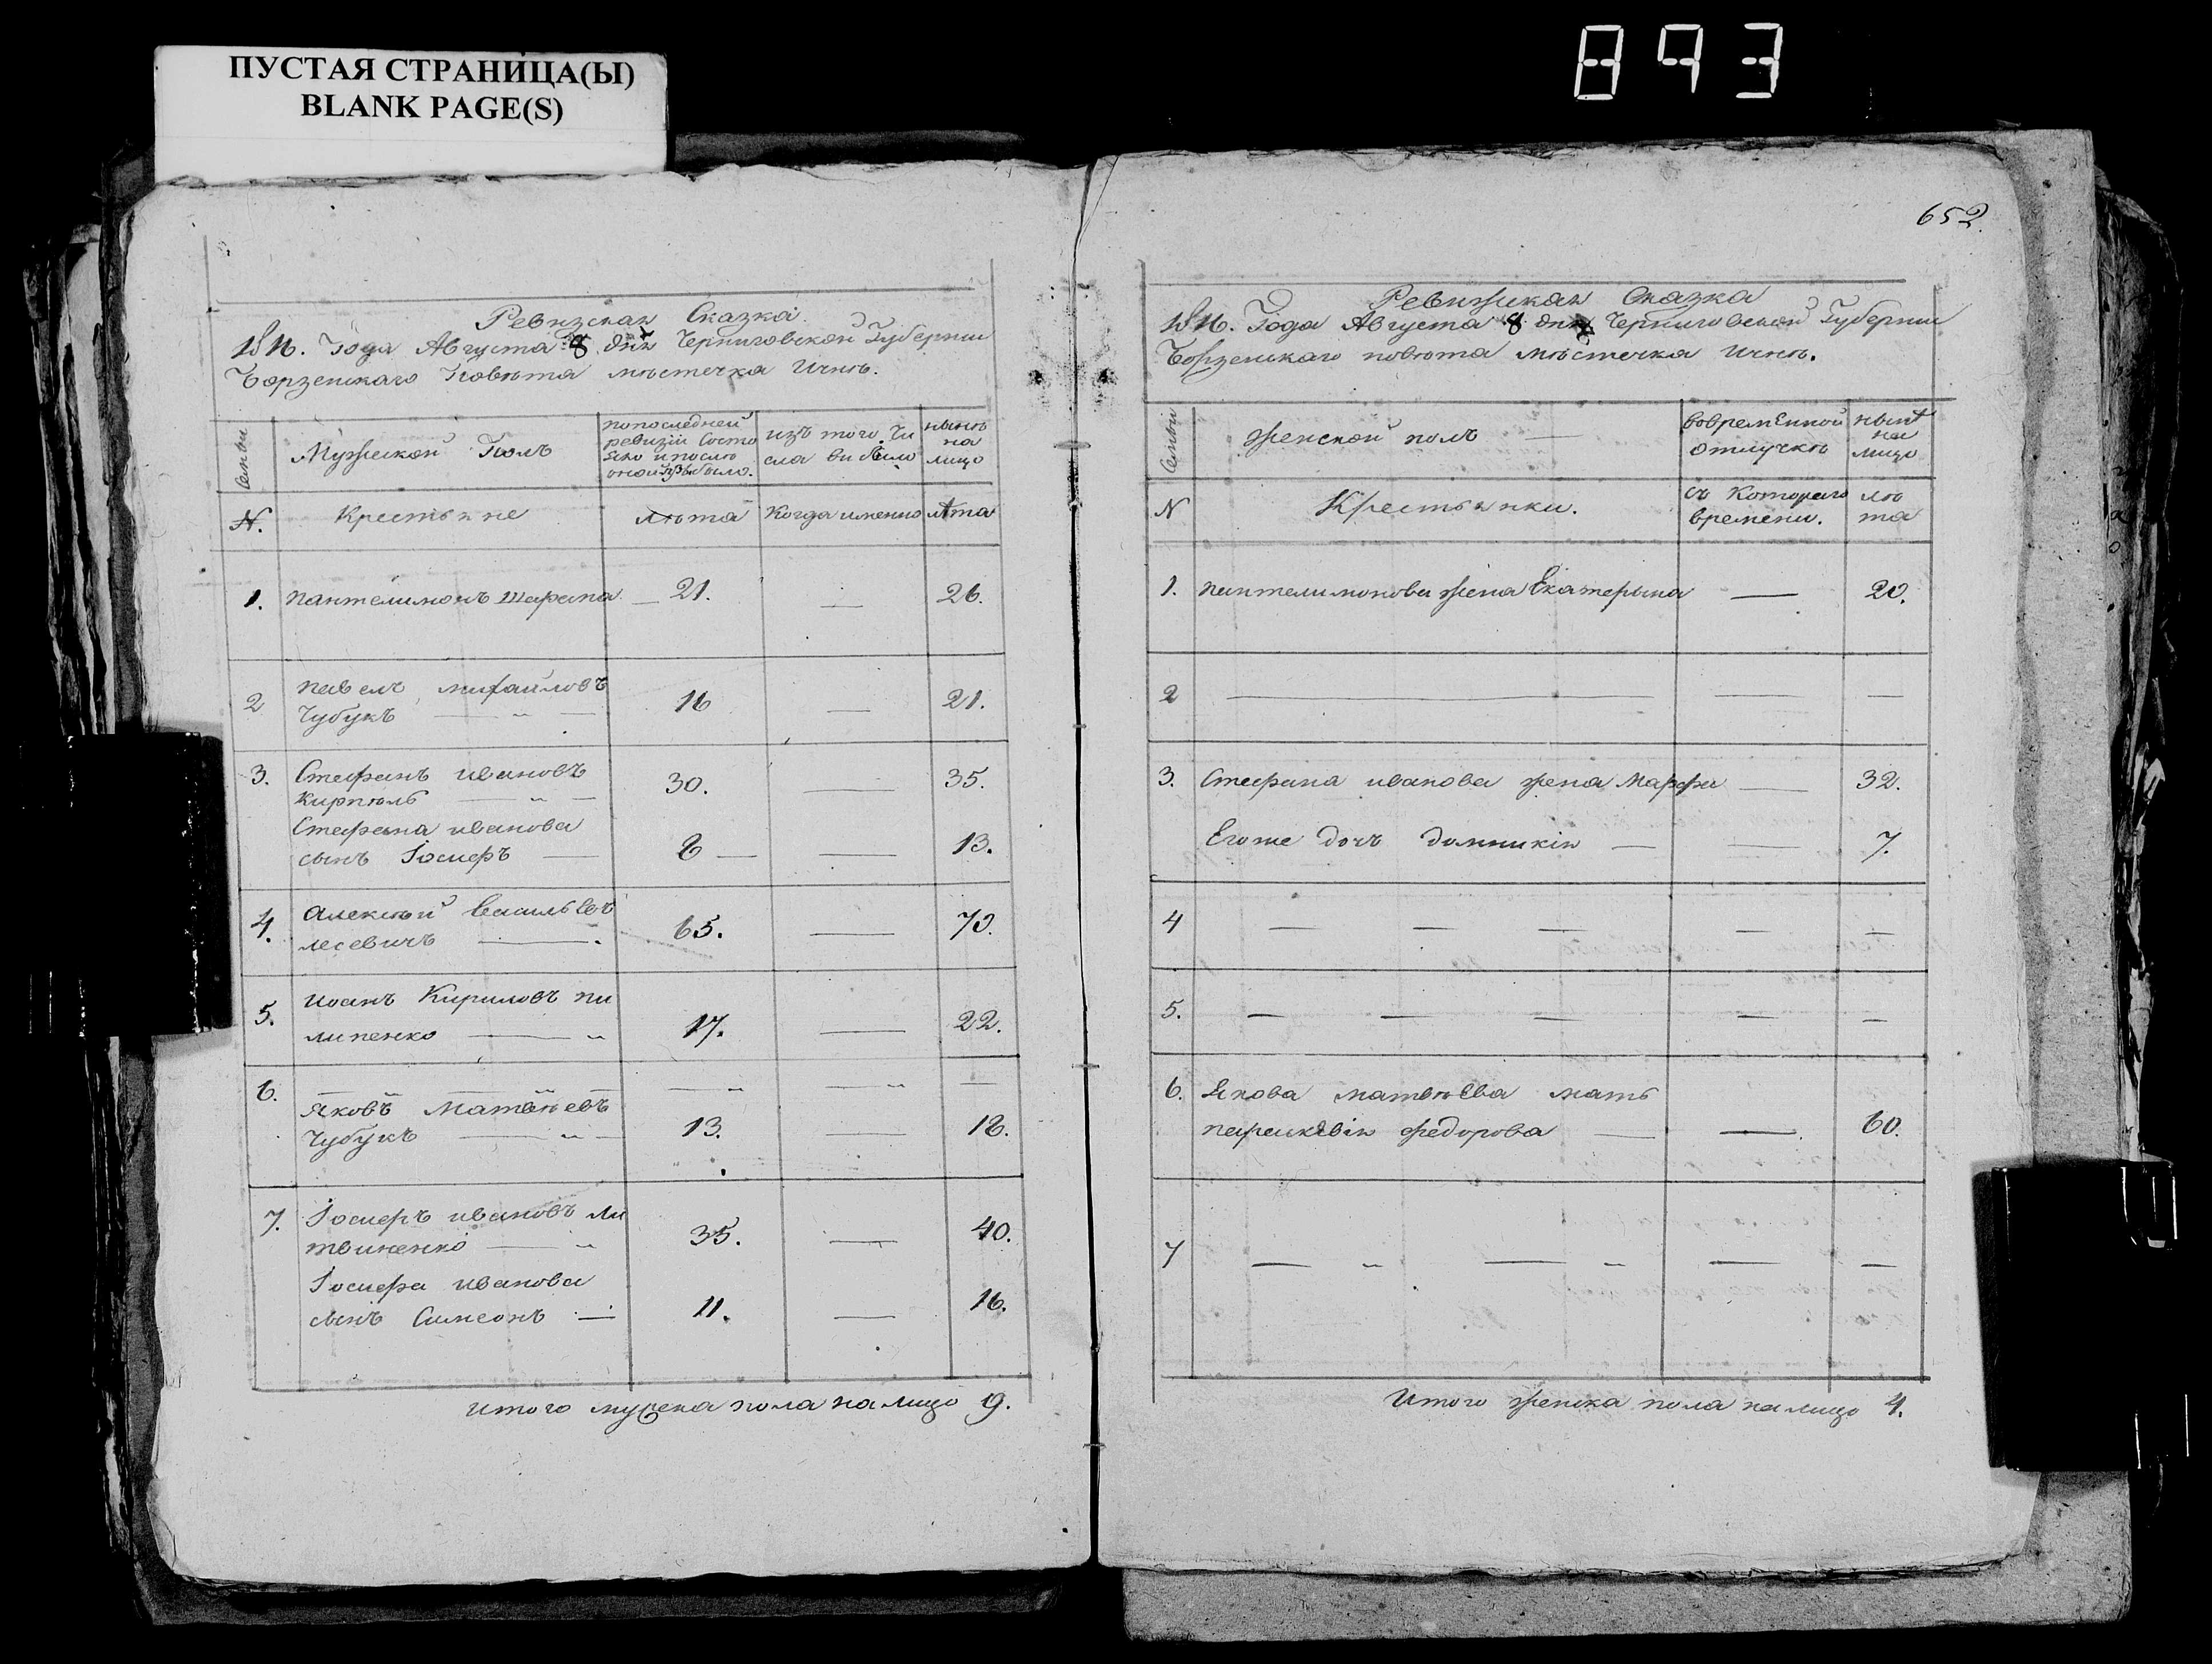 ПУСТАЯ СТРАНИЦА(Ы)
BLANK PAGE(S)
893
Ревизская Сказка
1816. Года Августа 8 дня Черниговской Губернии
Борзенскаго Повѣта мѣстечка Ичнѣ.
Семьи
Мужеской Полъ
по последней
ревизіи состо
яло и послѣ
оной прибыло.
изъ того чи
сла выбыло
нынѣ
на
лицо
N.
Крестьяне
лѣта
Когда именно
лѣта
1. Пантелимонъ Шарапа 21. — 26.
2 Павелъ михайловъ
Чубукъ — " — 16 — 21.
3. Стефанъ ивановъ
Кирпѣль — " — 30. — 35.
Стефана иванова
сынъ Іосифъ — 8 — — 13.
4. Алексѣй Васильевъ
лесевичъ — 65. — 70.
5. Иоанъ Кириловъ пи
липенко — " 17. — 22.
6.
Яковъ Матвѣевъ
Чубукъ — " — 13. — 18.
7. Іосифъ ивановъ ли
твиненко — " 35. — 40.
Іосифа иванова
сынъ Симеонъ — 11. — 16.
Итого мужска пола на лицо 9.
652.
Ревижская Сказка
1816. Года Августа 8 дня Черниговской Губернии
Борзенскаго повѣта мѣстечка Ичнѣ.
Семьи
Женской полъ —
вовременной
отлучкѣ
нынѣ
на
лицо
N
Крестьянки.
съ Котораго
времени.
лѣ
та
1. Пантелимонова жена Екатерына — 20.
2 — — —
3. Стефана иванова жена Марфа — 32.
Егоже дочь домникія — — 7.
4 — — — — —
5. — — — — —
6. Якова матвѣева мать
параскевія федорова — — 60.
7 — " — " — —
Итого женска пола налицо 4.